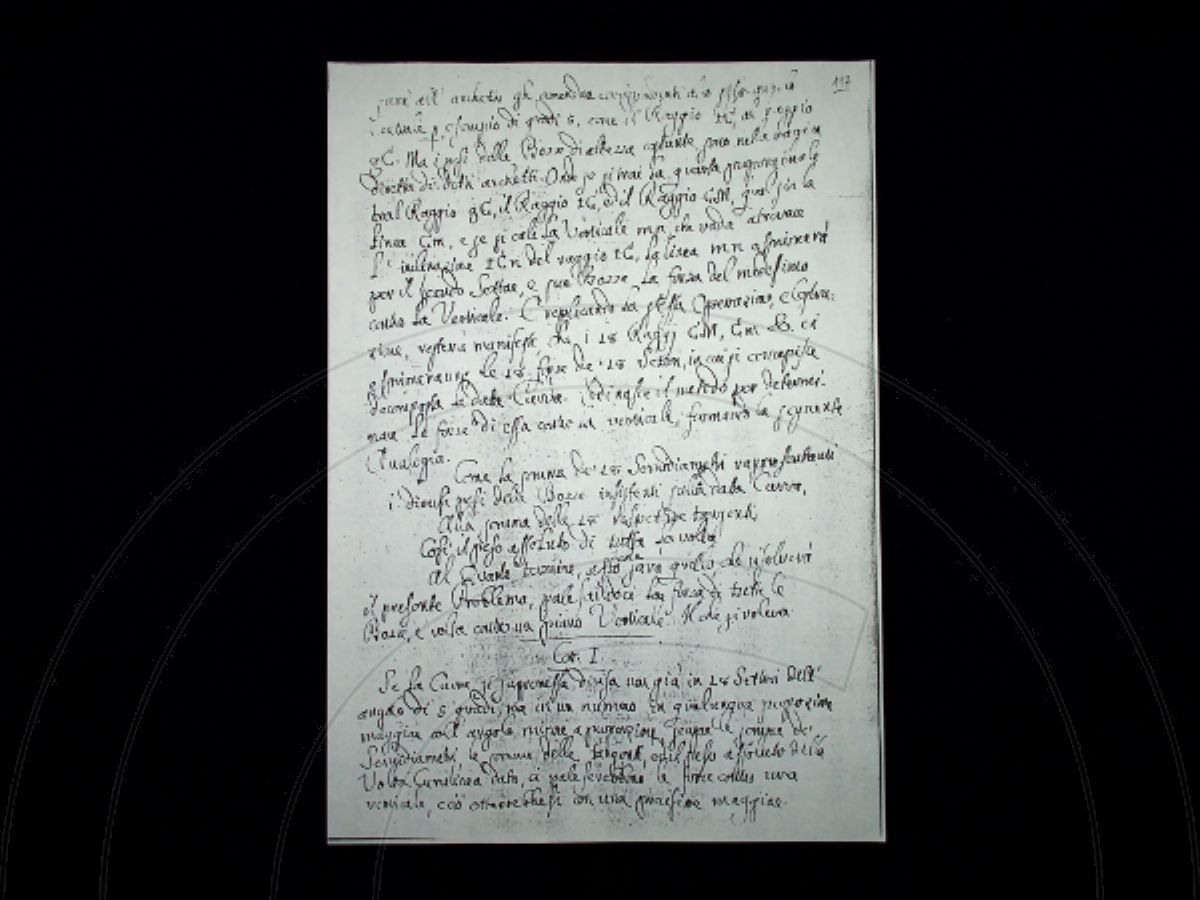 117
dell' archetto gli
p. esempio di gradi 5, come il Raggio al Raggio
gC. Ma i pesi delle Bozze di altezza sono nella ragion
di detti archetti. Onde se si trai la quarta proporzionale
tral Raggio gC, il Raggio IC, ed il Raggio GM, qual sia la
linea Gm, e se si cali la Verticale mn, che vada a trovare
l'inclinazione ICn del raggio IC, la linea mn esprimerà
per il secondo Settore, e sue Bozze la forza del medesimo
contro la Verticale. E replicando la stessa Operazione, e
resterà manifesto, che i 18 Raggj GM, Gm &c. ci
esprimeranno le 18 forze de' 18 Settori, in cui si concepisce
decomposta la data Curva. il metodo per determi-
nare le forze di essa contro la verticale, formando la seguente
Analogia.
Come la somma de' 18 Semidiametri rappresentanti
i diversi pesi delle Bozze insistenti sulla data Curva,
Alla somma delle 18 respettive tangenti,
Così il peso assoluto di tutta la volta
Al Quarto termine, esso sarà quello che risolverà
il presente Problema, palesandoci la forza di tutte le
Bozze, e volta contro un piano Verticale. Il che si voleva
Cor. I.
Se la Curva si supponesse divisa non già in 18 Settori dell'
angolo di 5 gradi, ma in un numero in qualunque proporzione
maggiore coll' angolo minore a proporzione, somme de'
Semidiametri, le somme delle tangenti, e il peso assoluto della
Volta Curvilinea data, ci paleserebbono le forze contro una
verticale, ciò otterrebbesi con una precisione maggiore.